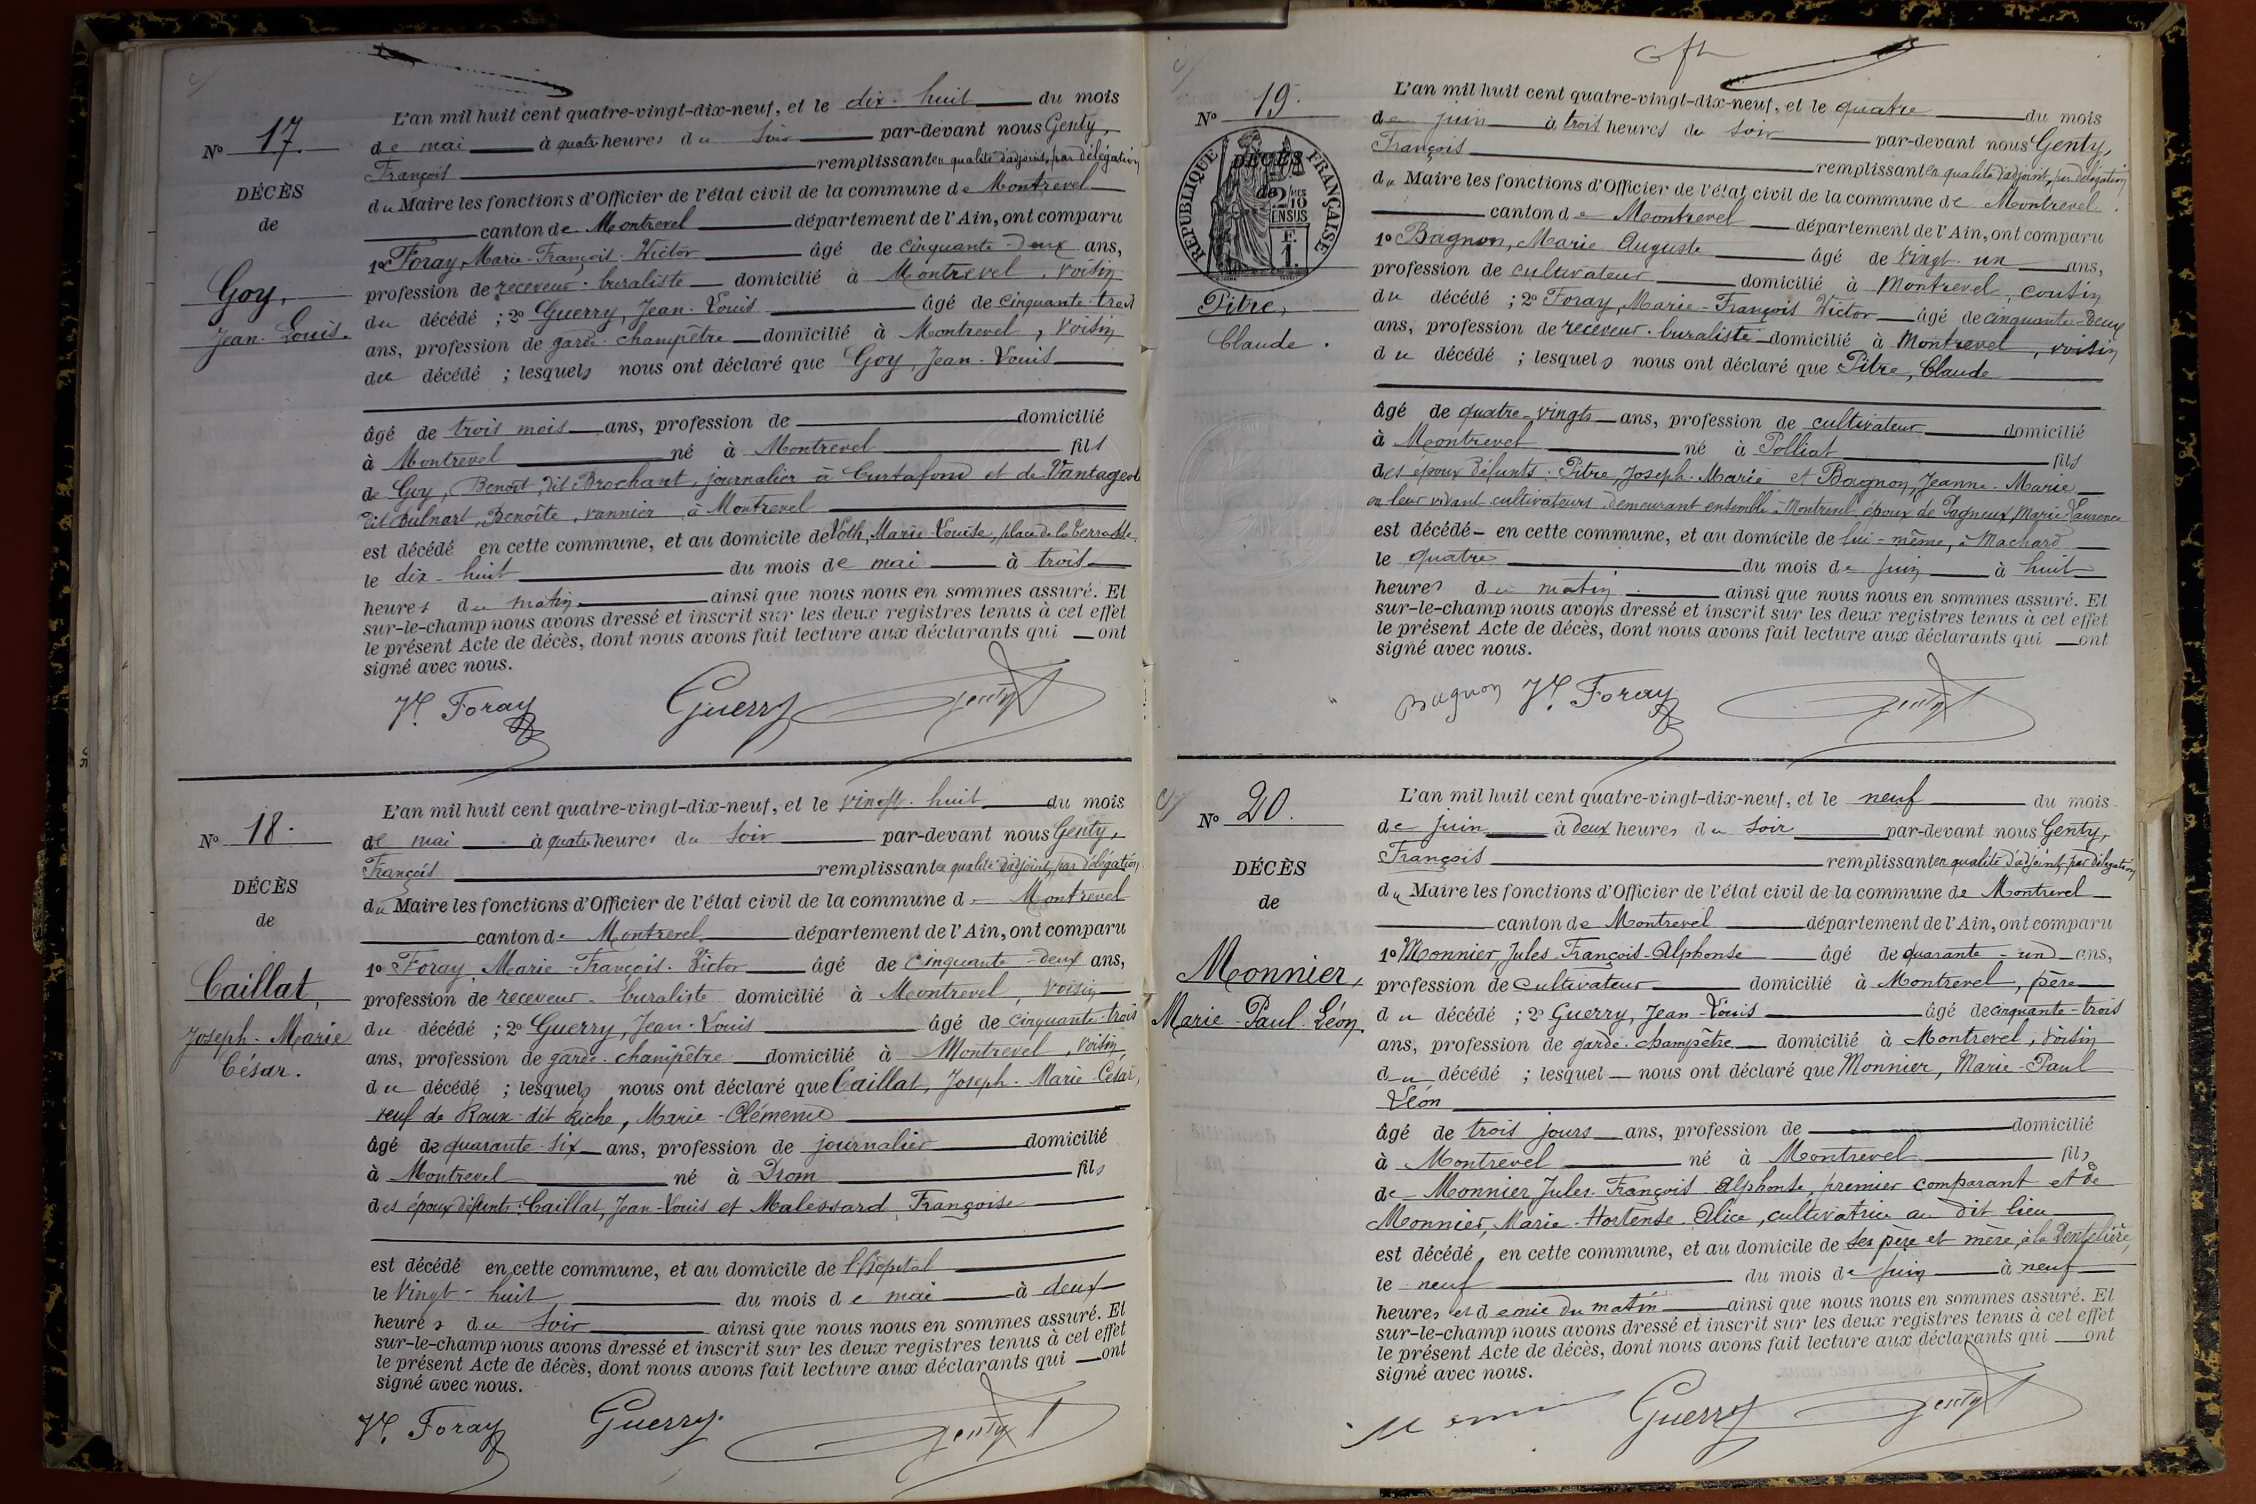 N° 17.
DÉCÈS
de
Goy,
Jean-Louis.
L'an mil huit cent quatre-vingt-dix-neuf, et le dix-huit du mois
de mai à quatre heures du soir par-devant nous Genty,
François remplissant en qualité d'adjoint, par délégation
du Maire les fonctions d'Officier de l'état civil de la commune de Montrevel
canton de Montrevel département de l'Ain, ont comparu
1° Foray, Marie-François-Victor âgé de cinquante-deux ans,
profession de receveur-buraliste domicilié à Montrevel, voisin
du décédé ; 2° Guerry, Jean-Louis âgé de cinquante-trois
ans, profession de garde-champêtre domicilié à Montrevel, voisin
du décédé ; lesquels nous ont déclaré que Goy, Jean-Louis
âgé de trois mois ans, profession de domicilié
à Montrevel né à Montrevel fils
de Goy, Benoît, dit Brochant, journalier à Curtafond et de
dit Bulnart, Benoîte, vannier à Montrevel
est décédé en cette commune, et au domicile de Voth, Marie-Louise, place de la
le dix-huit du mois de mai à trois
heures du matin ainsi que nous nous en sommes assuré. Et
sur-le-champ nous avons dressé et inscrit sur les deux registres tenus à cet effet
le présent Acte de décès, dont nous avons fait lecture aux déclarants qui ont
signé avec nous.
Vr. Foray Guerry Genty
N° 18.
DÉCÈS
de
Caillat,
Joseph-Marie
César.
L'an mil huit cent quatre-vingt-dix-neuf, et le vingt-huit du mois
de mai à quatre heures du soir par-devant nous Genty,
François remplissant en qualité d'adjoint, par délégation
du Maire les fonctions d'Officier de l'état civil de la commune de Montrevel
canton de Montrevel département de l'Ain, ont comparu
1° Foray, Marie-François-Victor âgé de cinquante-deux ans,
profession de receveur-buraliste domicilié à Montrevel, voisin
du décédé ; 2° Guerry, Jean-Louis âgé de cinquante-trois
ans, profession de garde-champêtre domicilié à Montrevel, voisin
du décédé ; lesquels nous ont déclaré que Caillat, Joseph-Marie-César,
veuf de Roux dit Riche, Marie-Clémence
âgé de quarante-six ans, profession de journalier domicilié
à Montrevel né à Drom fils
des époux défunts : Caillat, Jean-Louis et Malessard, Françoise
est décédé en cette commune, et au domicile de l'hôpital
le vingt-huit du mois de mai à deux
heures du soir ainsi que nous nous en sommes assuré. Et
sur-le-champ nous avons dressé et inscrit sur les deux registres tenus à cet effet
le présent Acte de décès, dont nous avons fait lecture aux déclarants qui ont
signé avec nous.
Vr. Foray Guerry. Genty
N° 19.
RÉPUBLIQUE FRANÇAISE
2/10
EN SUS
F.
1.
DÉCÈS
de
Pitre,
Claude.
L'an mil huit cent quatre-vingt-dix-neuf, et le quatre du mois
de juin à trois heures du soir par-devant nous Genty,
François remplissant en qualité d'adjoint, par délégation
du Maire les fonctions d'Officier de l'état civil de la commune de Montrevel.
canton de Montrevel département de l'Ain, ont comparu
1° Bagnon, Marie Auguste âgé de vingt-un ans,
profession de cultivateur domicilié à Montrevel, cousin
du décédé ; 2° Foray, Marie-François Victor âgé de cinquante-deux
ans, profession de receveur-buraliste domicilié à Montrevel, voisin
du décédé ; lesquels nous ont déclaré que Pitre, Claude
âgé de quatre-vingts ans, profession de cultivateur domicilié
à Montrevel né à Polliat fils
des époux défunts : Pitre, Joseph-Marie et Bagnon, Jeanne-Marie
en leur vivant cultivateurs demeurant ensemble à Montrevel, époux de Pagneux, Marie-Laurence
est décédé en cette commune, et au domicile de lui-même, à Machard
le quatre du mois de juin à huit
heures du matin ainsi que nous nous en sommes assuré. Et
sur-le-champ nous avons dressé et inscrit sur les deux registres tenus à cet effet
le présent Acte de décès, dont nous avons fait lecture aux déclarants qui ont
signé avec nous.
Bagnon Vr. Foray Genty
N° 20.
DÉCÈS
de
Monnier,
Marie-Paul-Léon.
L'an mil huit cent quatre-vingt-dix-neuf, et le neuf du mois
de juin à deux heures du soir par-devant nous Genty,
François remplissant en qualité d'adjoint, par délégation
du Maire les fonctions d'Officier de l'état civil de la commune de Montrevel
canton de Montrevel département de l'Ain, ont comparu
1° Monnier Jules-François-Alphonse âgé de quarante-un ans,
profession de cultivateur domicilié à Montrevel, père
du décédé ; 2° Guerry, Jean-Louis âgé de cinquante-trois
ans, profession de garde-champêtre domicilié à Montrevel, voisin
du décédé ; lesquel nous ont déclaré que Monnier, Marie-Paul
Léon
âgé de trois jours ans, profession de domicilié
à Montrevel né à Montrevel fils
de Monnier Jules-François Alphonse, premier comparant et de
Monnier, Marie-Hortense Alice, cultivatrice au dit lieu
est décédé, en cette commune, et au domicile de ses père et mère, à la Dentelière,
le neuf du mois de juin à neuf
heures et demie du matin ainsi que nous nous en sommes assuré. Et
sur-le-champ nous avons dressé et inscrit sur les deux registres tenus à cet effet
le présent Acte de décès, dont nous avons fait lecture aux déclarants qui ont
signé avec nous.
Guerry Genty